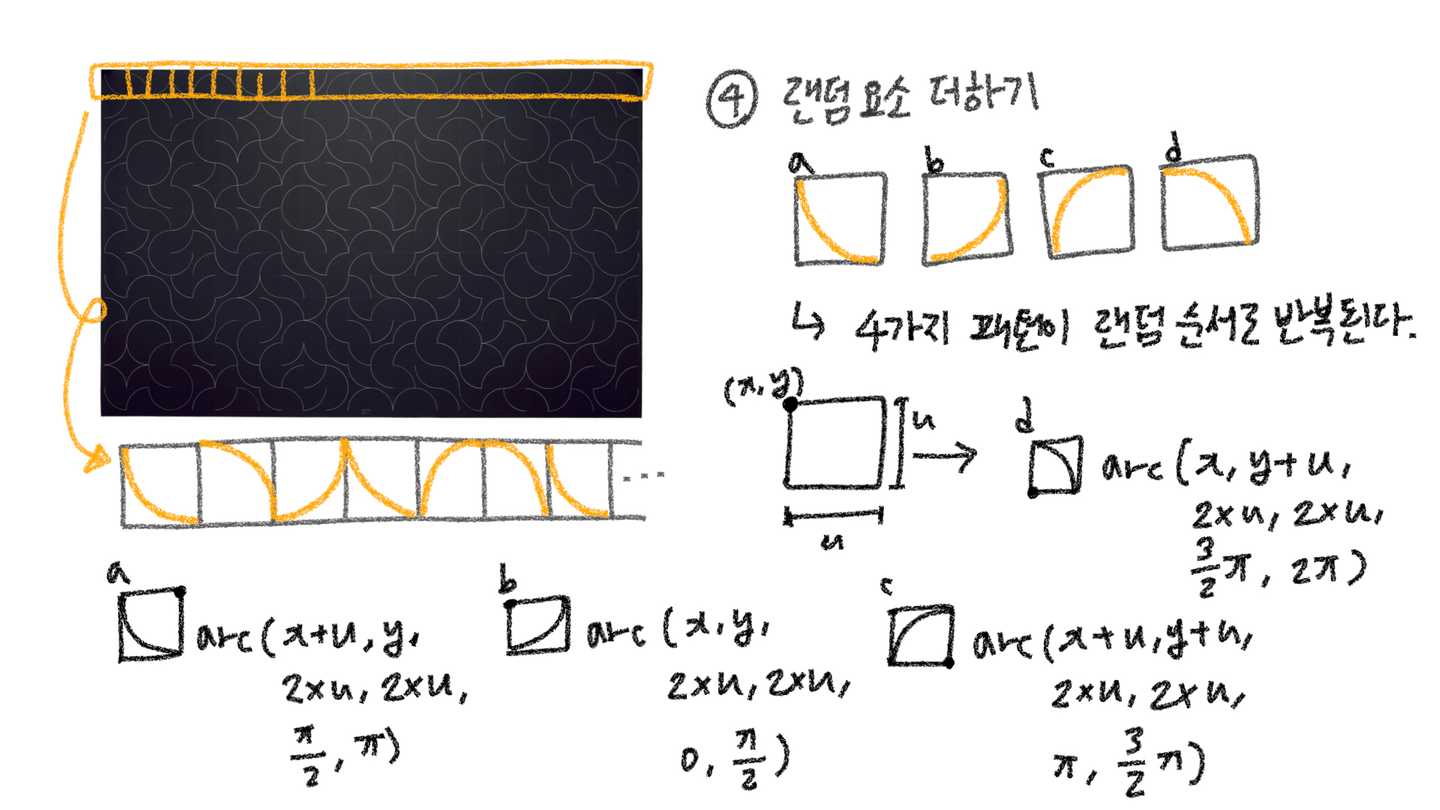 ④ 랜덤요소 더하기
a b c d
↳ 4가지 패턴이 랜덤 순서로 반복된다.
(x,y)
u
u
→
d
arc(x, y+u,
2×u, 2×u,
3/2π, 2π)
...
a
arc(x+u, y,
2×u, 2×u,
π/2, π)
b
arc(x, y,
2×u, 2×u,
0, π/2)
c
arc(x+u, y+u,
2×u, 2×u,
π, 3/2π)